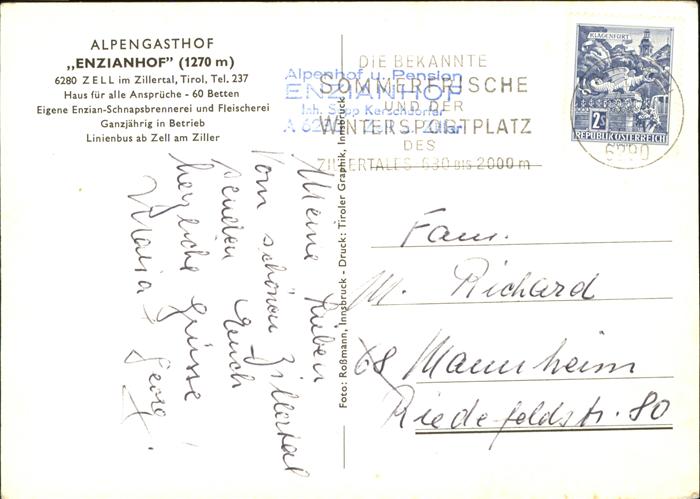 ALPENGASTHOF
„ENZIANHOF" (1270 m)
6280 ZELL im Zillertal, Tirol, Tel. 237
Haus für alle Ansprüche - 60 Betten
Eigene Enzian-Schnapsbrennerei und Fleischerei
Ganzjährig in Betrieb
Linienbus ab Zell am Ziller
Alpenhof u. Pension
ENZIANHOF
Inh. Sepp Kerschdorfer
Ziller
DIE BEKANNTE
SOMMERFRISCHE
UND DER
WINTERSPORTPLATZ
DES
ZILLERTALES 630 BIS 2000 m
KLAGENFURT
2S
REPUBLIK ÖSTERREICH
6280
Foto: Roßmann, Innsbruck - Druck: Tiroler Graphik, Innsbruck
Meine Lieben
Vom schönen Zillertal
senden Euch
herzliche Grüsse
Maria & Georg
Fam.
M. Richard
68 Mannheim
Riedefeldstr. 80